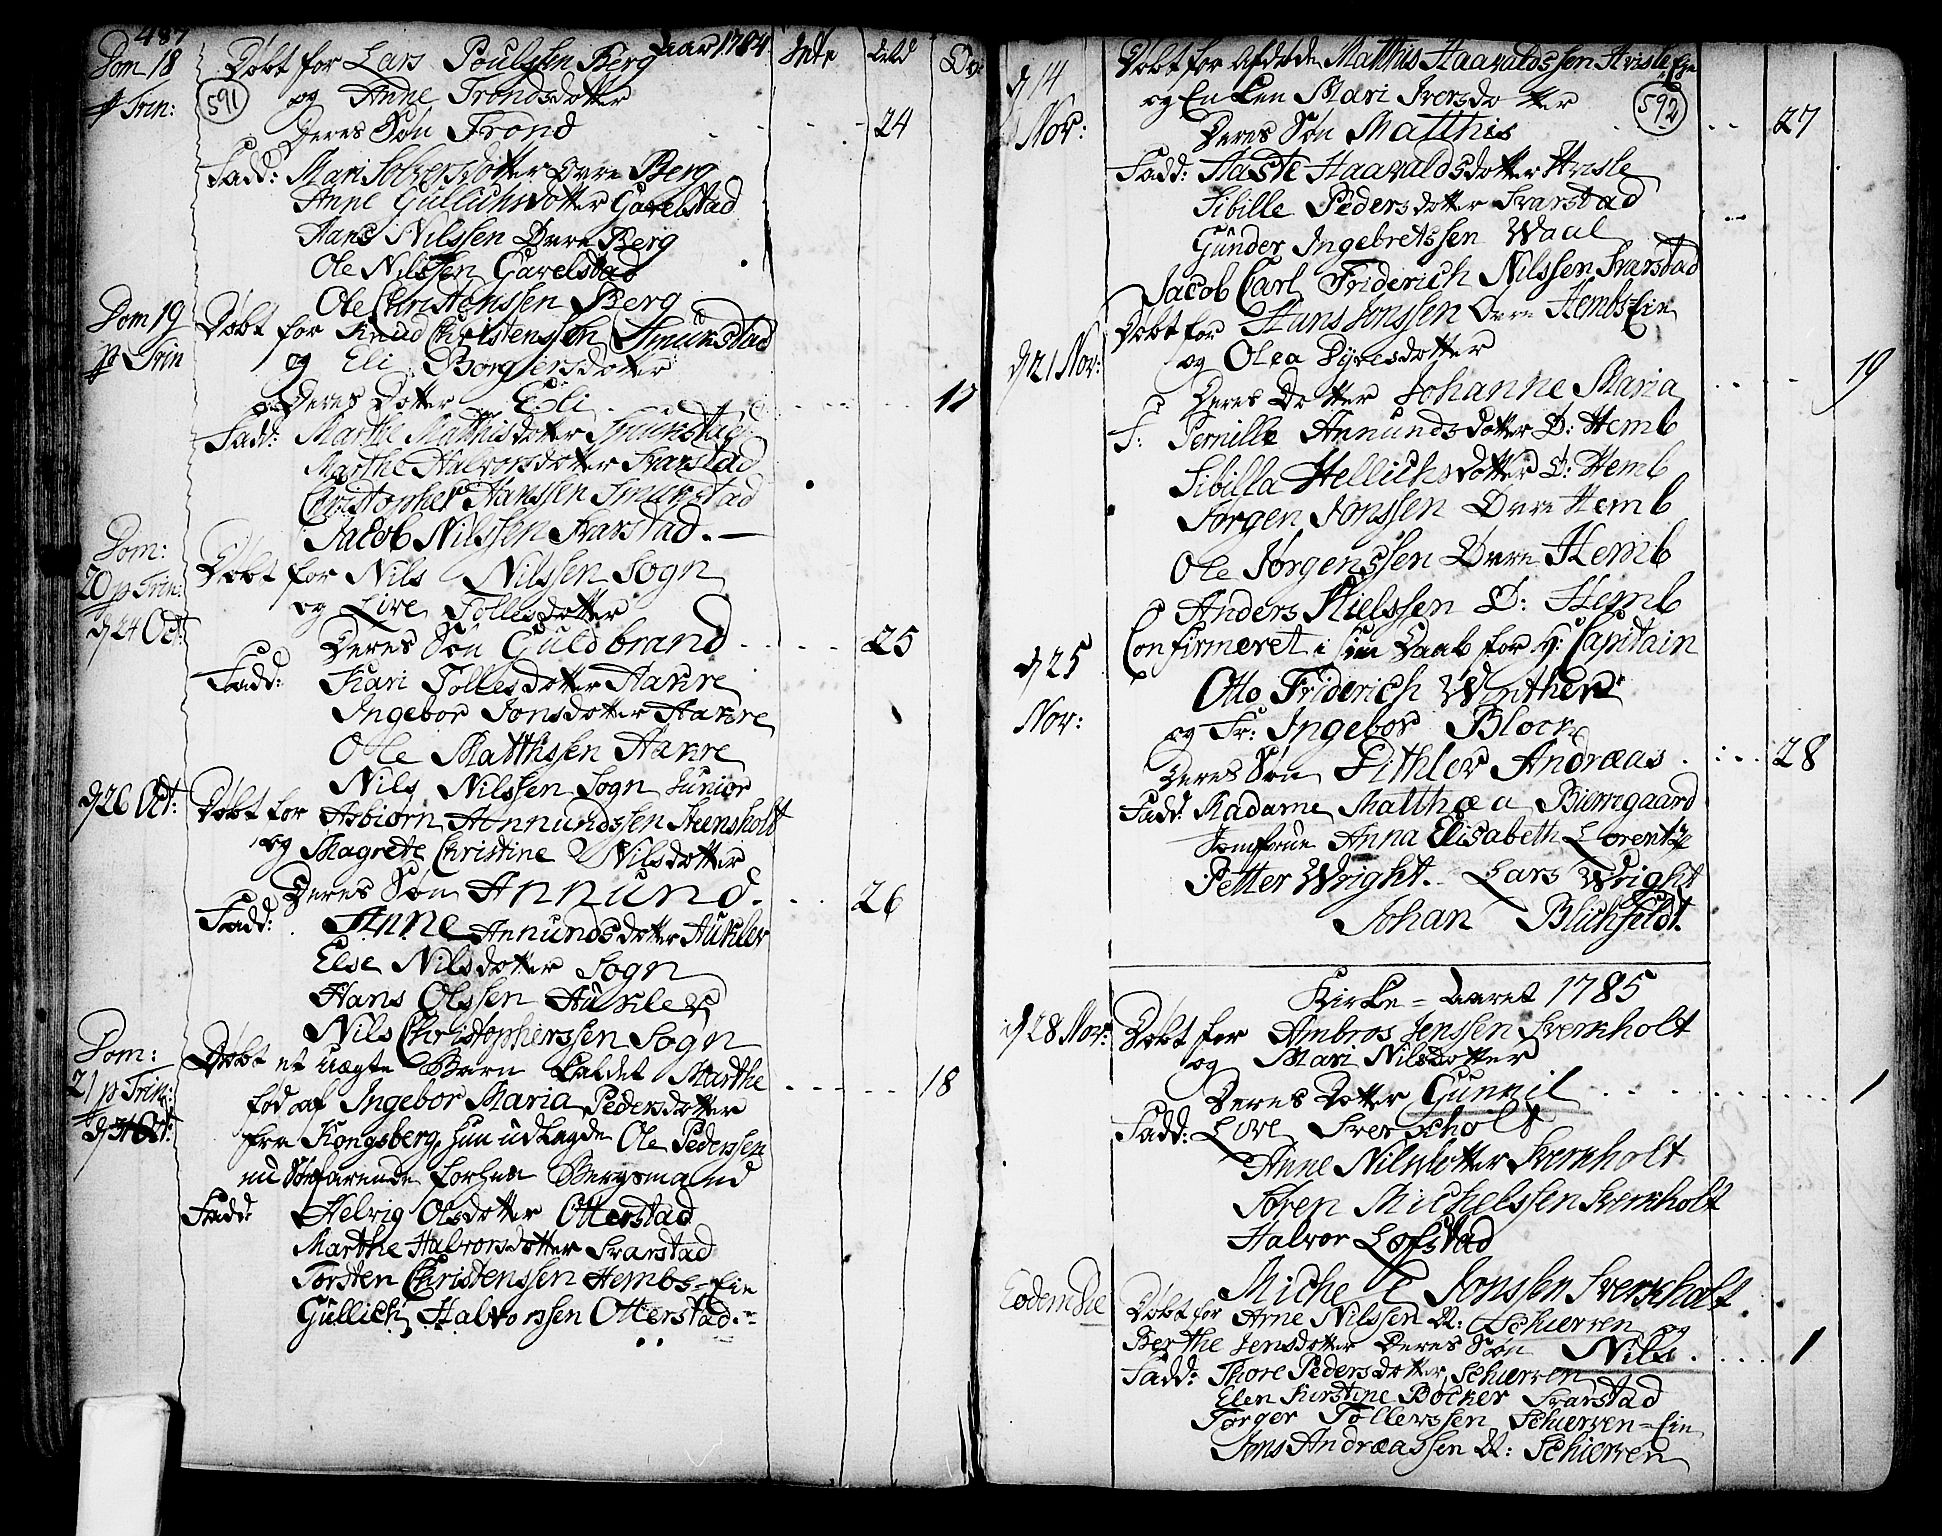 487
Aar 1784
Dom 18
p Trin:
591
Døbt for Lars Poulssen Berg
og Anne Trondsdotter
Deres Søn Trond 24
Fadd: Mari Solversdotter Øvre Berg
Anne Gullichsdotter Gavelstad
Hans Nilssen Øvre Berg
Ole Nilssen Gavelstad
Ole Christenssen Berg
Dom 19
p Trin
Døbt for Knud Christenssen Smukstad
og Eli Borgersdotter
Deres Dotter Eli 17
Fadd: Marthe Mathisdotter Smukstad
Marthe Halvorsdotter Svarstad
Christopher Hanssen Smukstad
Jacob Nilssen Svarstad.
Dom:
20 p Trin:
d 24 Oct:
Døbt for Nils Nilssen Sogn
og Live Tollesdotter
Deres Søn Guldbrand 25
Fadd: Kari Tollesdotter Haavre
Ingebor Jonsdotter Haavre
Ole Matthissen Haavre
Nils Nilssen Sogn Junior
d 26 Oct:
Døbt for Asbiørn Annundssen Steensholt
og Magrete Christine Nilsdotter
Deres Søn Annund. 26
Fadd: Anne Annundsdotter
Else Nilsdotter Sogn
Hans Olssen
Nils Christopherssen Sogn
Dom:
21 p Trin:
d 31 Oct:
Døbt et uægte Barn kaldet Marthe 18
fød af Ingebor Maria Pedersdotter
fra Kongsberg, hun udlagde Ole Pederssen
en Søefarende forhen Bergsmand
Fadd: Helvig Olsdotter Otterstad
Marthe Halvorsdotter Svarstad
Torsten Christenssen Hembs-Eie
Gullich Halvorssen Otterstad.
d 14
Nov:
592
Døbt for afdøde Matthis Haavaldssen Hvisle Eie
og Enken Mari Iversdotter
Deres Søn Matthis 27
Fadd: Aaste Haavaldsdotter Hvisle
Sibille Pedersdotter Svarstad
Gunder Ingebretssen Waal
Jacob Carl Friderich Nilssen Svarstad
d 21 Nov:
Døbt for Hans Jonssen Øvre Hembs-Eie
og Olea Syversdotter
Deres Dotter Johanne Maria 19
F: Pernille Annundsdotter Ø: Hemb
Sibilla Hellichsdotter Ø: Hemb
Jørgen Jonssen Øvre Hemb
Ole Jørgenssen Øvre Hemb
Anders Nielssen Ø: Hemb
d 25
Nov:
Confirmeret i sin Daab for H: Capitain
Otto Friderich Winther
og Fr: Ingebor Block
Deres Søn Dithlev Andreas 28
Fadd: Madame Matthæa Biørregaard
Jomfrue Anna Elisabeth Lorentze
Petter Wright. Lars Wright
Johan Blichfeldt.
Kirke-Aaret 1785
d 28 Nov:
Døbt for Ambros Jenssen Sverkholt
og Mari Nilsdotter
Deres Dotter Gunnil 1
Fadd: Live Sverkholt
Anne Nilsdotter Sverkholt
Søren Michelssen Sverkholt
Halvor Lofstad
Michel Jonssen Sverkholt.
Eodem Die
Døbt for Arne Nilssen N: Schierven og
Berthe Jensdotter Deres Søn Nils 1
Fadd: Thore Pedersdotter Schierven
Elen Kirstine Bøcker Svarstad
Torger Tollevssen Schierven-Eie
Jens Andreassen N: Schierven